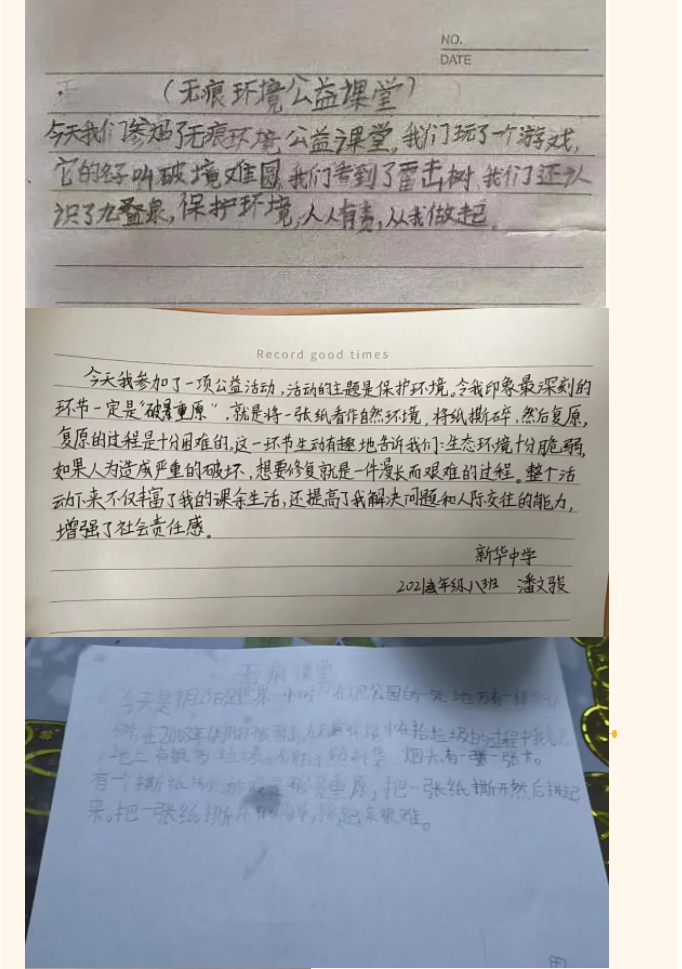 NO.
DATE
（无痕环境公益课堂）
今天我们参加了无痕环境公益课堂，我们玩了一个游戏，
它的名字叫破境难圆，我们看到了雷击树，我们还认
识了九叠泉，保护环境，人人有责，从我做起。
Record good times
今天我参加了一项公益活动，活动的主题是保护环境。令我印象最深刻的
环节一定是“破暴重原”，就是将一张纸看作自然环境，将纸撕碎，然后复原，
复原的过程是十分困难的，这一环节生动有趣地告诉我们：生态环境十分脆弱，
如果人为造成严重的破坏，想要修复就是一件漫长而艰难的过程。整个活
动下来不仅丰富了我的课余生活，还提高了我解决问题和人际交往的能力，
增强了社会责任感。
新华中学
2021级八班 潘文骏
无痕课堂
今天是 人民公园的一处地方有一棵
树，在2003年 在捡垃圾的过程中我
，地上有很多垃圾。 烟头有一 一张卡。
有一个撕纸 重原，把一张纸撕开然后拼起
来。把一张纸撕 拼起来很难。